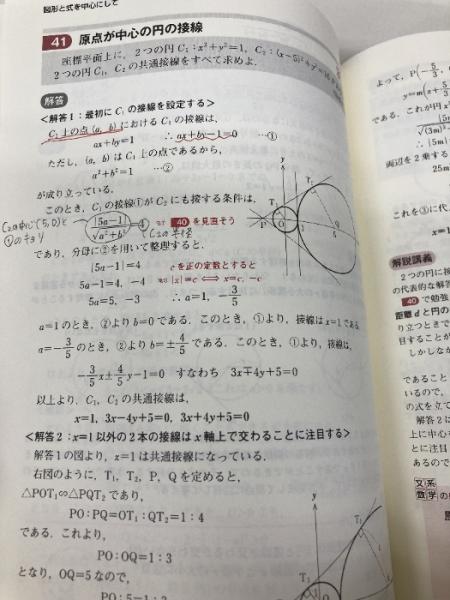 図形と式を中心にして
41 原点が中心の円の接線
座標平面上に，2つの円C₁：x²+y²=1，C₂：(x-5)²+y²=16
2つの円C₁，C₂の共通接線をすべて求めよ．
解答
＜解答1：最初にC₁の接線を設定する＞
C₁上の点(a, b)におけるC₁の接線は，
ax+by=1 ∴ax+by-1=0 …①
ただし，(a, b)はC₁上の点であるから，
a²+b²=1 …②
が成り立っている．
このとき，C₁の接線①がC₂にも接する条件は，
C₂の中心(5,0)と
①のキョリ
|5a-1|/√(a²+b²)=4 40 を見直そう
C₂の半径
であり，分母に②を用いて整理すると．
|5a-1|=4 cを正の定数とすると
5a-1=4, -4 |x|=c⟺x=c, -c
5a=5, -3 ∴a=1, -3/5
a=1のとき，②よりb=0である．このとき，①より，接線はx=1である．
a=-3/5のとき，②よりb=±4/5である．このとき，①より，接線は，
-3/5x±4/5y-1=0 すなわち 3x∓4y+5=0
以上より，C₁，C₂の共通接線は，
x=1, 3x-4y+5=0, 3x+4y+5=0
＜解答2：x=1以外の2本の接線はx軸上で交わることに注目する＞
解答1の図より，x=1は共通接線になっている．
右図のように，T₁，T₂，P，Qを定めると，
△POT₁∽△PQT₂であり，
PO：PQ=OT₁：QT₂=1：4
である．これより，
PO：OQ=1：3
となり，OQ=5なので，
PO：5=1：3
y
T₂
T₁
P
O
Q
x
T₂
T₁
よって，P(-5/3,
y=m(x+5/3
である．これが円x²
|5m
√(3m)²
∴|5m|
両辺を2乗する
25m
これを③に代
x=
解説講義
2つの円に接
の代表的な解答
40 で勉強
距離dと円の
り立つときで
目することが
しかしなが
であること
いるので，
の式を立て
解答2に
上に中心を
とに注目
あるので
文系
数学の